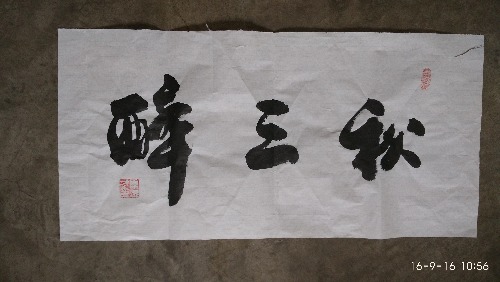 醉三秋
16-9-16 10:56